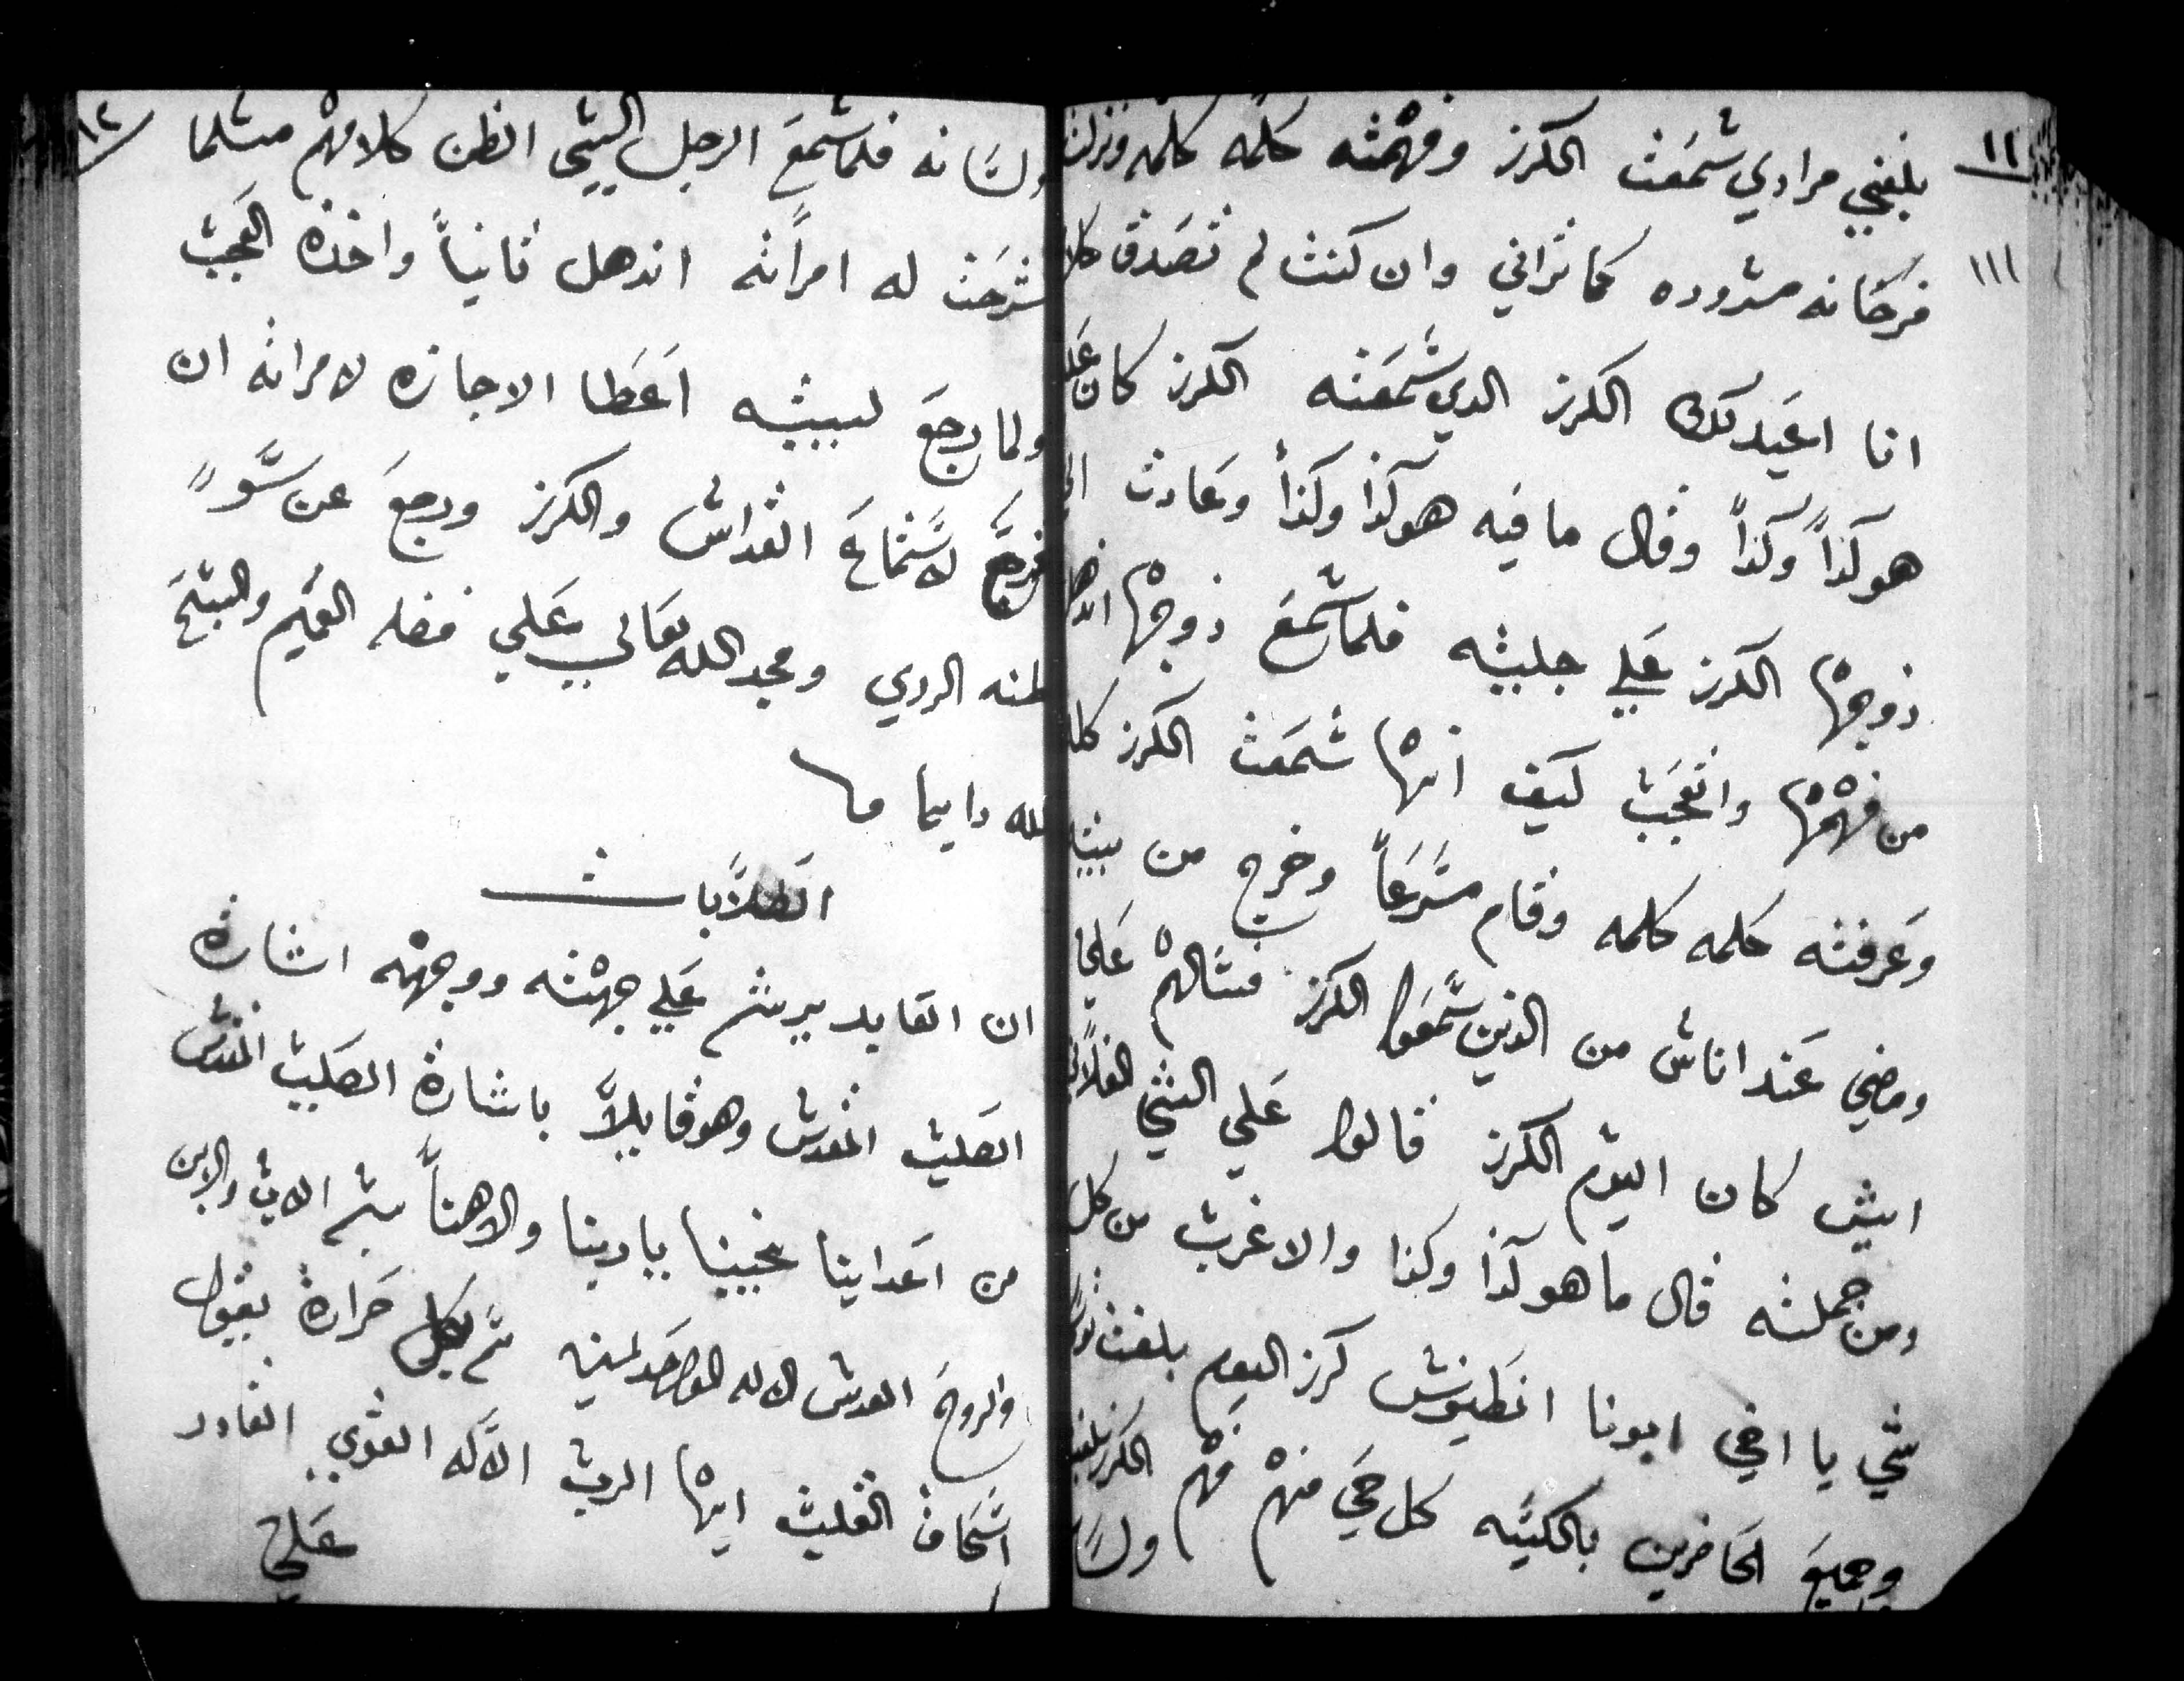 ١١
بلغني مرادي سمعت الكرز وفهمته كلمه كلمه ونزلت
١١١
فرحانه مسروره كما تراني وان كنت لم تصدق كلا
انا اعيد لك الكرز الدي سمعته الكرز كان على
هوكذاً وكذاً وقال ما فيه هوكذا وكذاً وعادت الى
زوجها الكرز علي جليته فلما سمع زوجها اندهل
من فهمها واتعجب كيف انها سمعت الكرز كله
وعرفته كلمه كلمه وقام مسرعاً وخرج من بيته
ومضي عند اناس من الدين سمعوا الكرز فسالهم على
ايش كان اليوم الكرز قالوا علي الشي الفلاني
ومن جملته قال ما هوكذا وكذا والاغرب من كل
شي يا اخي ابونا انطيوس كرز اليوم بلغت
وجميع الحاضرين بالكنيسه كل حي منهم فهم الكرز بلغته
ولسا
١٢
ولسانه فلما سمع الرجل السي الظن كلامهم متلما
شرحت له امراته اندهل تانياً واخده العجب
ولما رجع لبيته اعطا الاجازه لامراته ان
تروح لاستماع القداس والكرز ورجع عن سو
ظنه الردي ومجد الله تعالي علي فضله العميم والسبح
لله دايما
الطلابات
ان القايد يرشم علي جهته ووجهه اشارة
الصليب المقدس وهو قايلاً باشارة الصليب المقدس
من اعداينا نجينا ياربنا والاهنا بسم الاب والابن
والروح القدس الاله الواحد امين تم بكل حرارة بيقول
اسحاق القليب ايها الرب الاله القوي القادر
علي